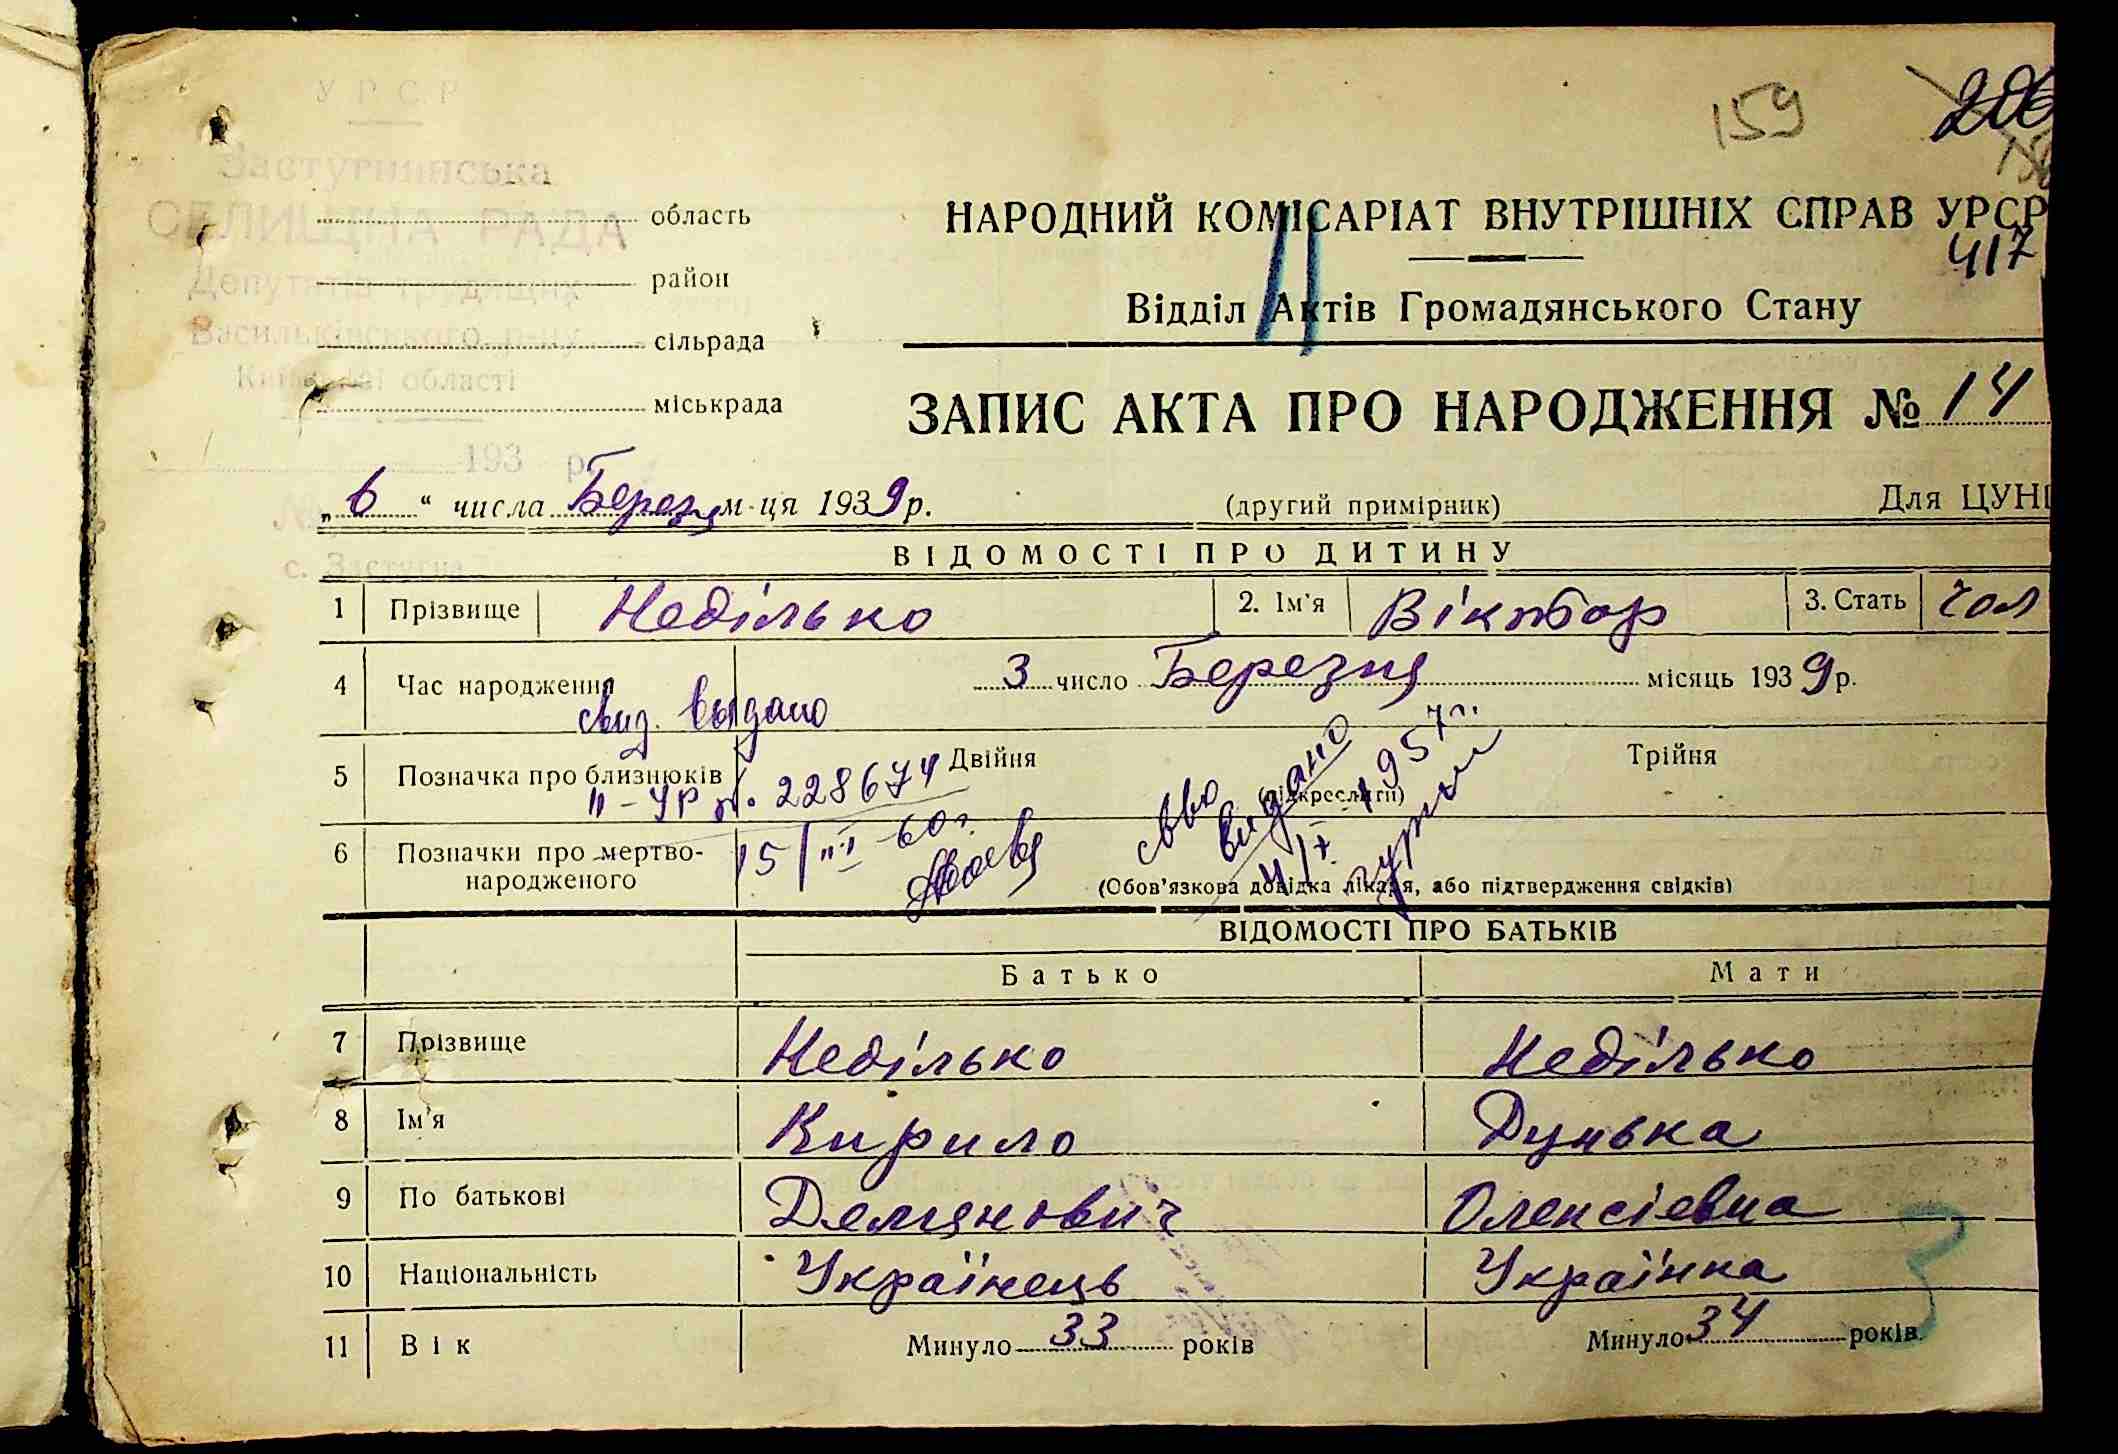 У Р С Р
Застугнинська
СЕЛИЩНА РАДА
Депутатів трудящих
Васильківського р-ну
Київської області
193 р.
№
с. Застугна
159
206
область
район
сільрада
міськрада
НАРОДНИЙ КОМІСАРІАТ ВНУТРІШНІХ СПРАВ УРСР
417
Відділ Актів Громадянського Стану
ЗАПИС АКТА ПРО НАРОДЖЕННЯ № 14
„ 6 “ числа Березня м-ця 1939 р.
(другий примірник)
Для ЦУНГ
ВІДОМОСТІ ПРО ДИТИНУ
1 Прізвище Неділько 2. Ім'я Віктор 3. Стать чол
4 Час народження 3 число Березня місяць 1939 р.
свид. выдано
5 Позначка про близнюків Двійня Трійня
(підкреслити)
II-УР №. 228674
15/III-60г.
св во видано
4/X-1957р.
6 Позначки про мертво-
народженого
(Обов'язкова довідка лікаря, або підтвердження свідків)
ВІДОМОСТІ ПРО БАТЬКІВ
Батько Мати
7 Прізвище Неділько Неділько
8 Ім'я Кирило Дунька
9 По батькові Демянович Олексієвна
10 Національність Українець Українка
11 Вік Минуло 33 років Минуло 34 років